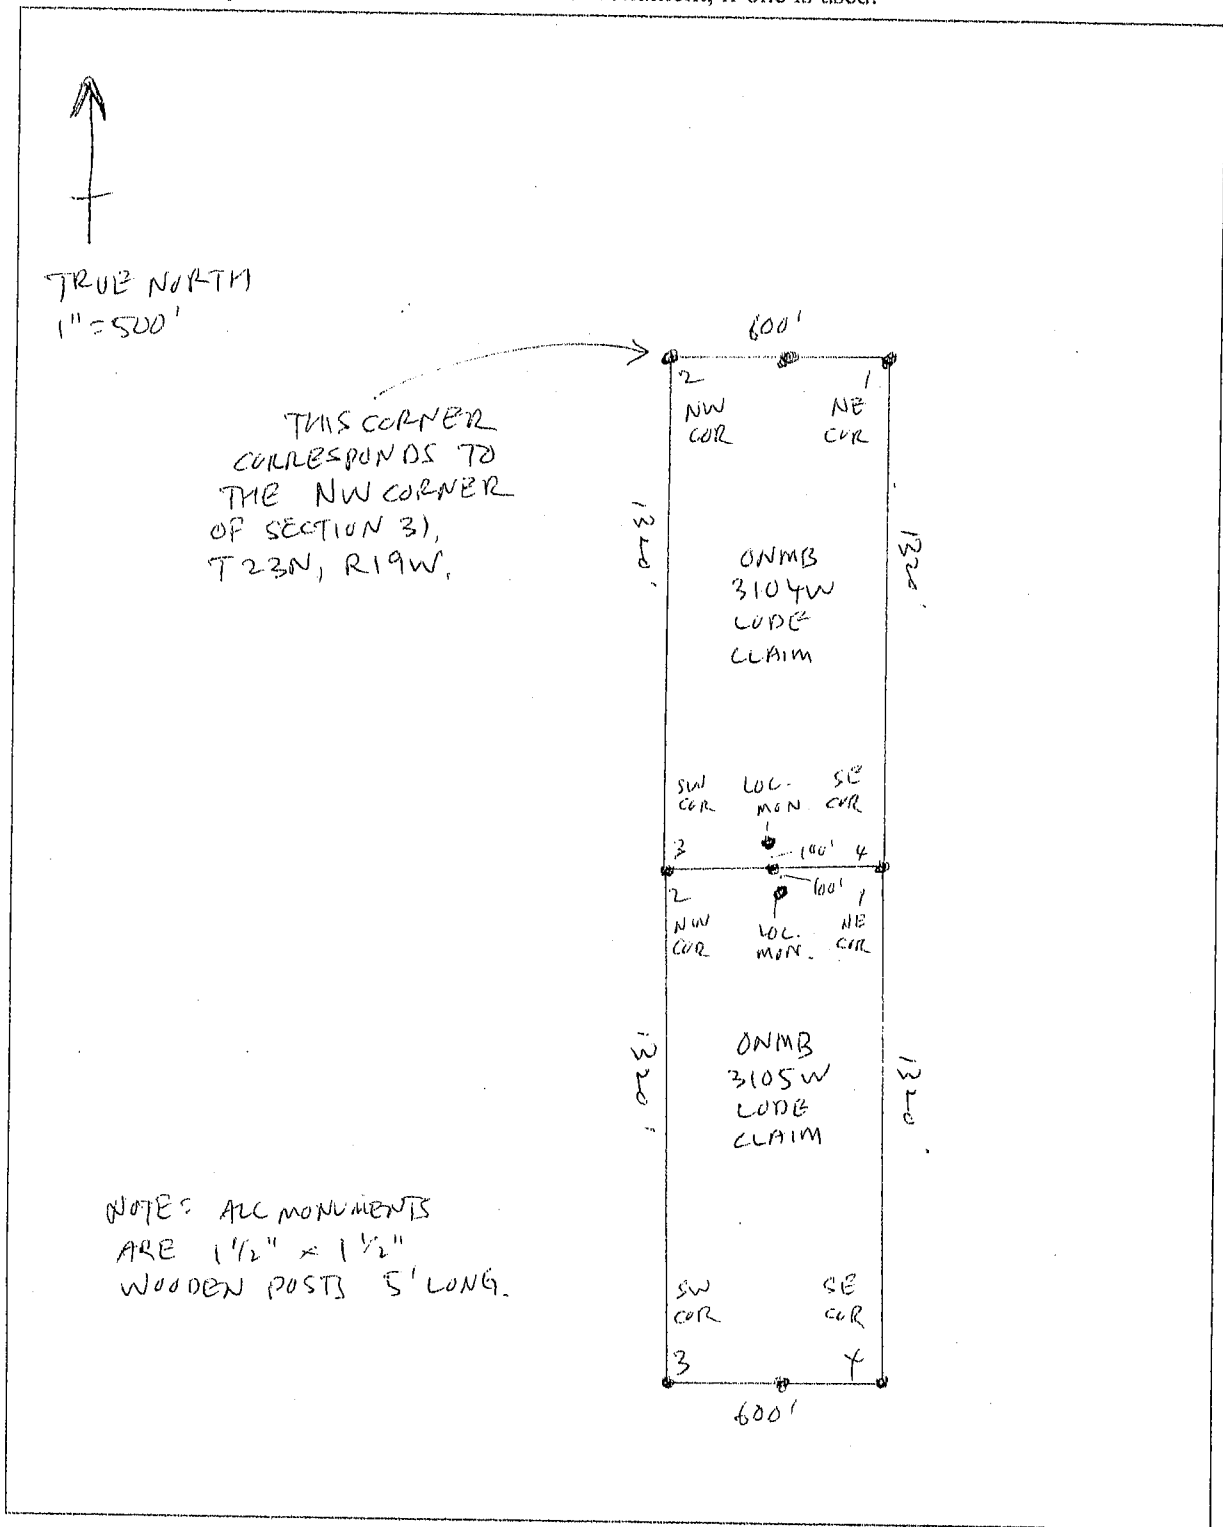 TRUE NORTH
1" = 500'
THIS CORNER
CORRESPONDS TO
THE NW CORNER
OF SECTION 31,
T23N, R19W.
600'
2
1
NW
COR
NE
COR
1320'
1320'
ONMB
3104W
LODE
CLAIM
SW
COR
LOC.
MON.
SE
COR
3
100'
4
2
100'
1
NW
COR
LOC.
MON.
NE
COR
1320'
1320'
ONMB
3105W
LODE
CLAIM
NOTE: ALL MONUMENTS
ARE 1 1/2" x 1 1/2"
WOODEN POSTS 5' LONG.
SW
COR
SE
COR
3
4
600'